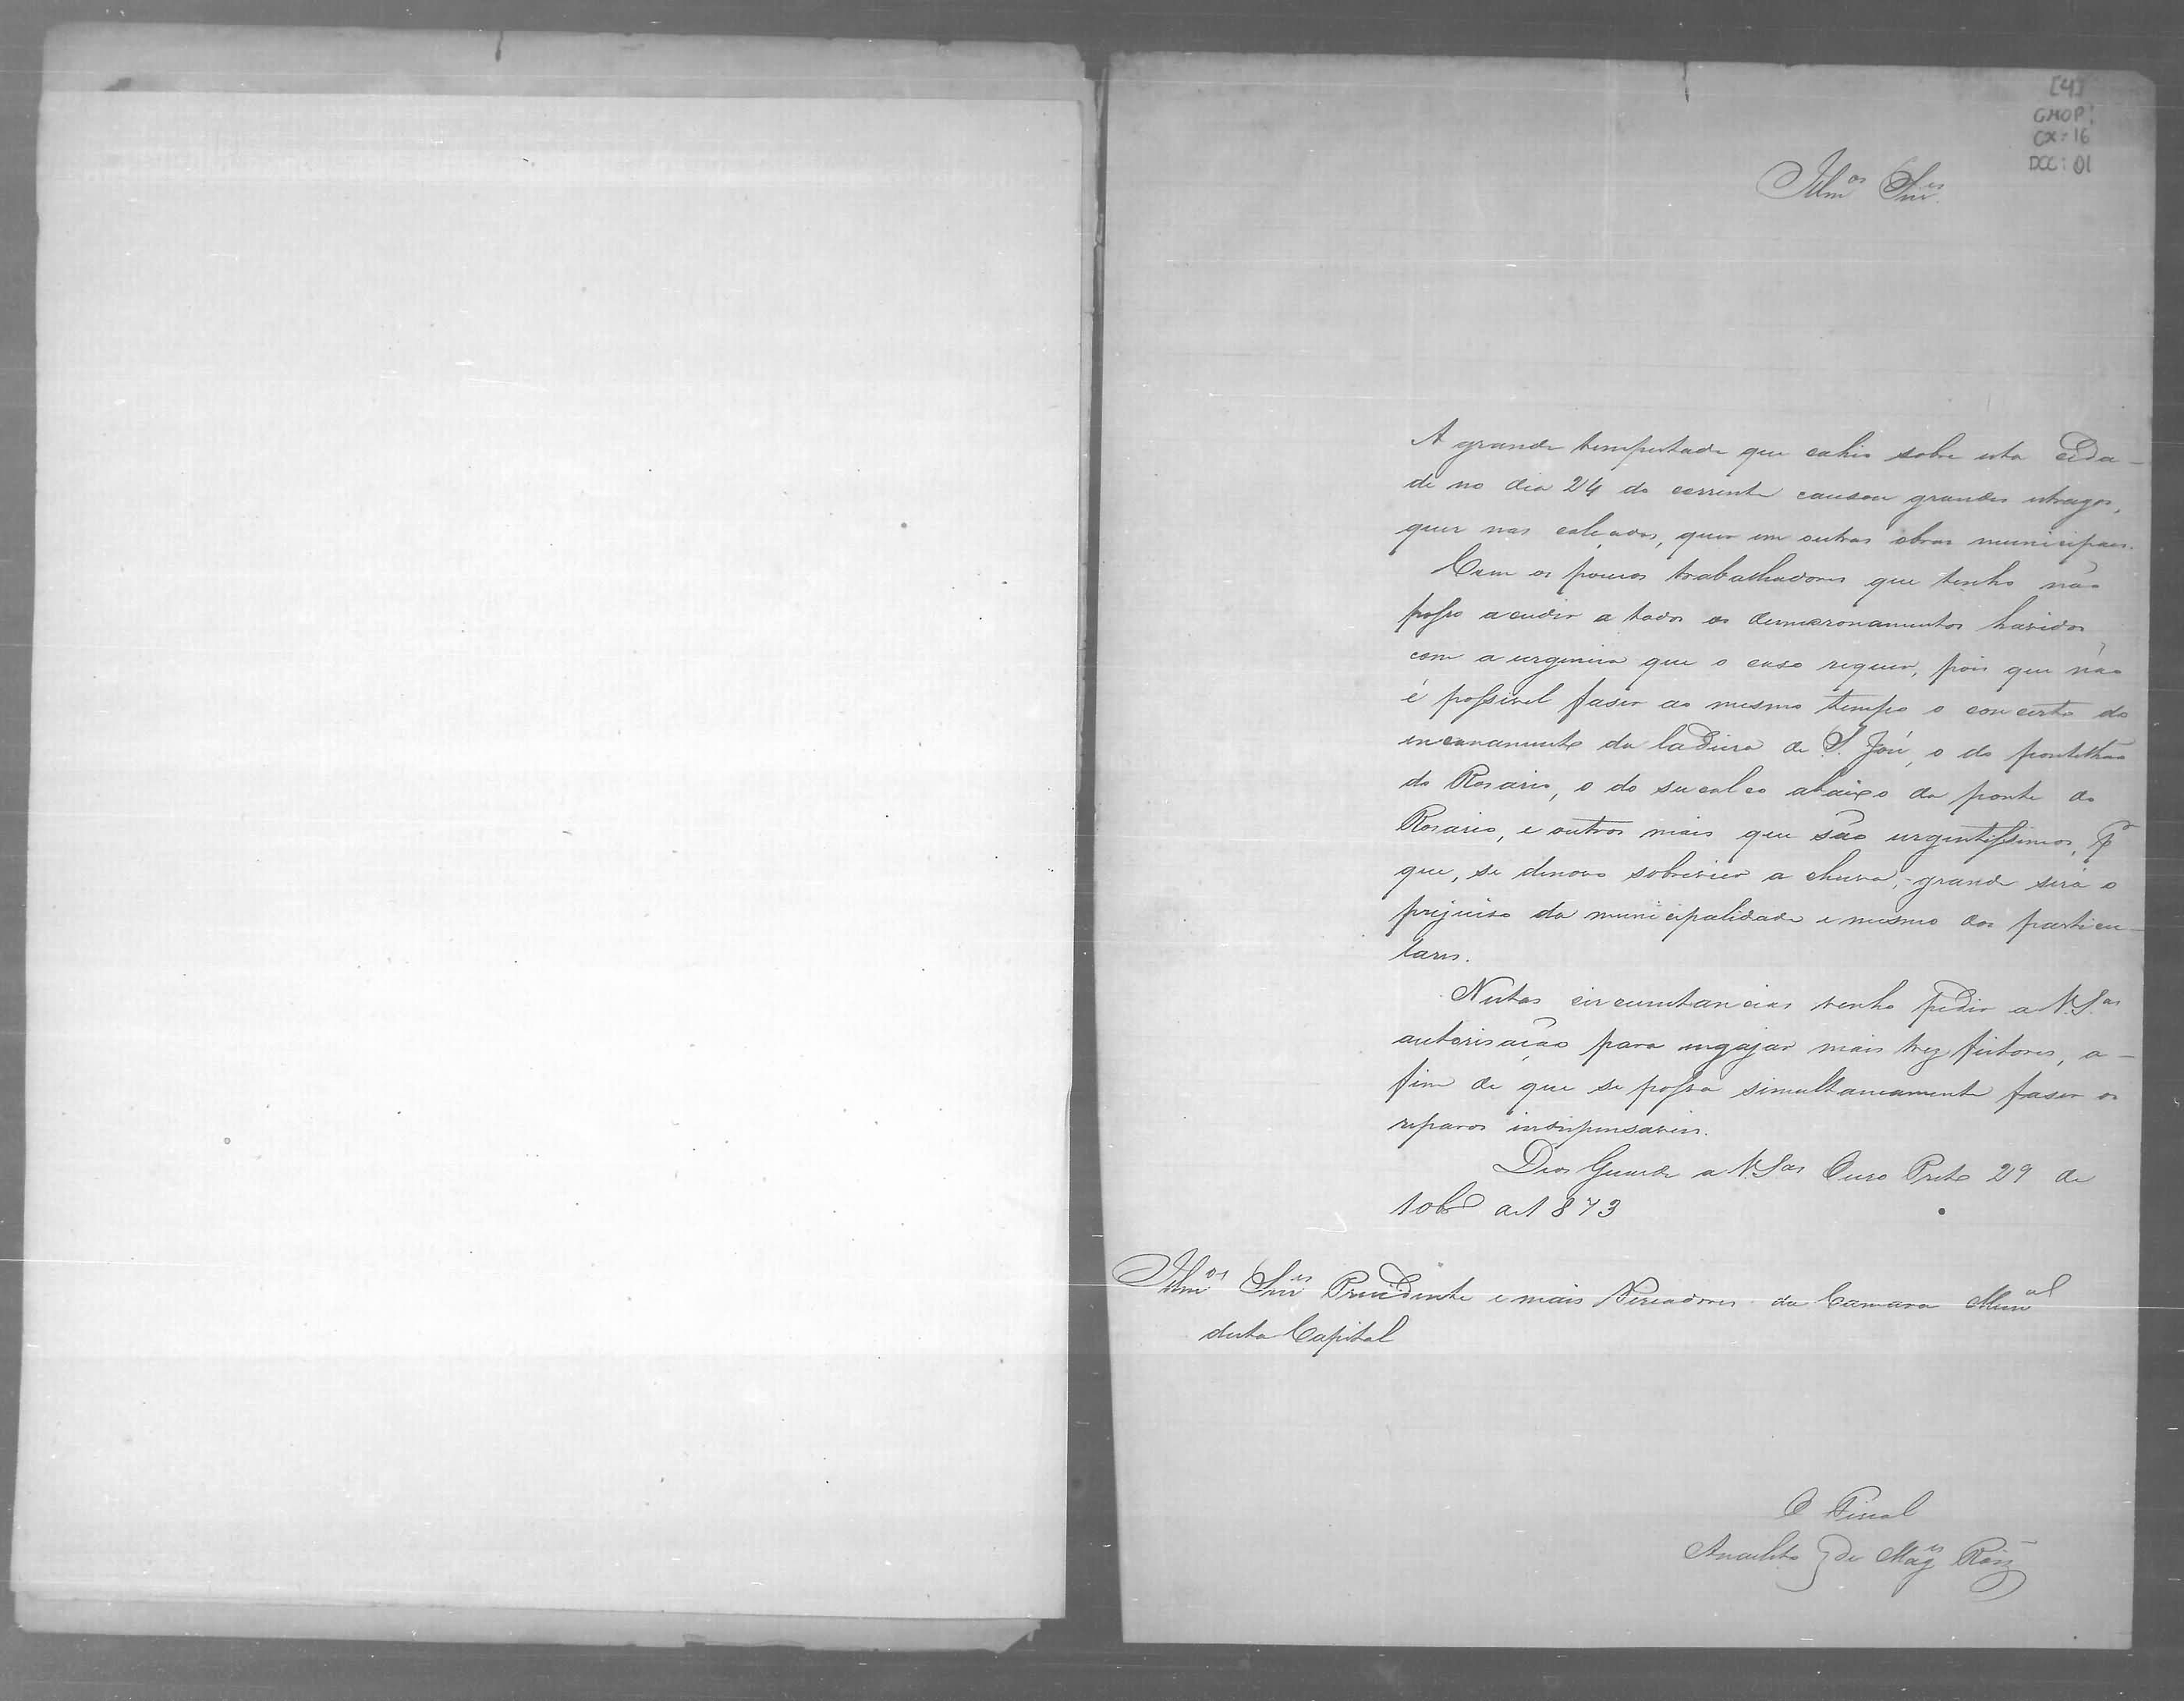 [4]
CMOP:
CX: 16
DOC: 01
Illm.os Snr.es
A grande tempestade que cahio sobre esta Cida-
de no dia 24 do corrente causou grandes estragos,
quer nas calçadas, quer em outras obras municipaes.
Com os poucos trabalhadores que tenho não
posso acudir a todos os desmoronamentos havidos
com a urgencia que o caso requer, pois que não
é possivel faser ao mesmo tempo o concerto do
encanamento da ladeira de S. José, o do pontilhão
do Rosario, o do sucalco abaixo da ponte do
Rosario, e outros mais que são urgentissimos, p.r
que, se denovo sobrevier a chuva, grande será o
prejuiso da municipalidade e mesmo dos particu-
lares.
Nestas circunstancias venho pedir a V.S.as
autorisação para engajar mais trez feitores, a-
fim de que se possa simultaneamente faser os
reparos indispensaveis.
Deos Guarde a V.S.as Ouro Preto 29 de
10br.o de 1873
Illm.os Snr.es Presidente e mais Vereadores da Camara Mun.al
desta Capital
O Fiscal
Anacleto de Mag.es Roiz